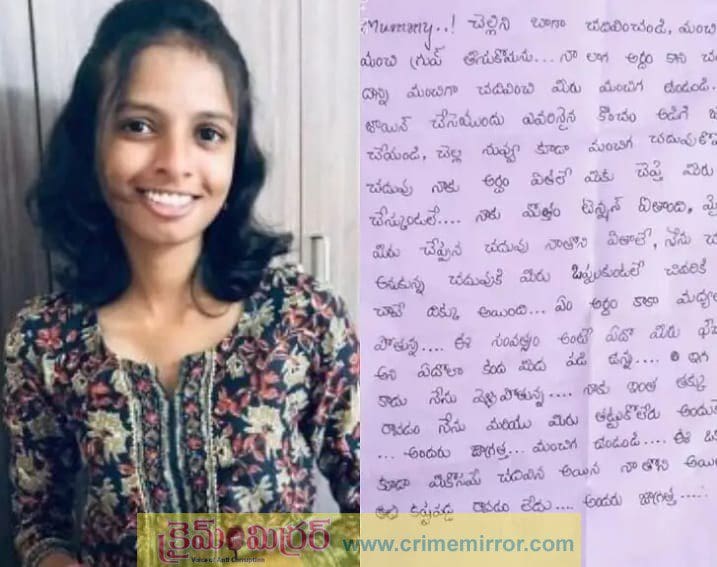 Mummy..! చెల్లిని బాగా చదివించండి, మంచి
మంచి గ్రుప్ తీసుకోమను... నా లాగ అర్థం కాని చ
దాన్ని మంచిగా చదివించి మీరు మంచిగ ఉండండి..
జాయిన్ చేసేముందు ఎవరినైన కొంచం అడిగి
చేయండి, చెల్ల నువ్వు కూడా మంచిగ చదువుకో
చదువు నాకు అర్థం మీకు చెప్తే మీరు
నాకు మొత్తం టెన్షన్ అవుతుంది,
మీరు చెప్పిన చదువు నాతోని నేను
అనుకున్న చదువుకి మీరు చివరికి
చావే దిక్కు అయింది... ఏం అర్థం కాకా
పోతున్న.... ఈ సంవత్సరం అంటే ఏదో మీరు
అని ఏదోలా కింద మీద పడి ఉన్న....
కాదు నేను వెళ్ళిపోతున్న.... నాకు ఇంత తక్కు
రావడం నేను మరియు మీరు తట్టుకోలేరు అందుకే
... అందరు జాగ్రత్త... మంచిగ ఉండండి.... ఈ
కూడా మీకోసమే చదివిన అయిన నా తోని
రావడం లేదు.... అందరు జాగ్రత్త.....
క్రైమ్ మిర్రర్
Voice of Anti Corruption
www.crimemirror.com